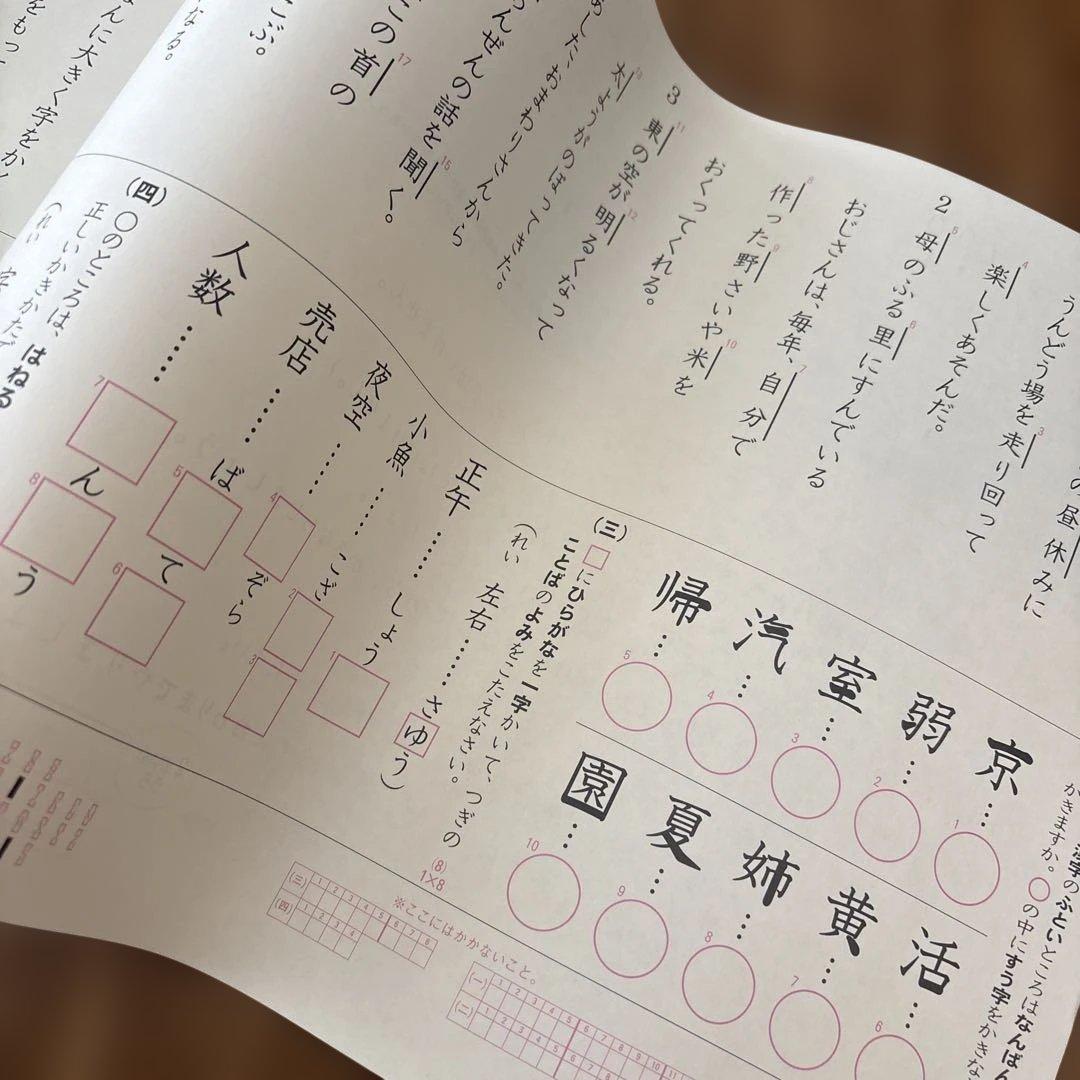 の昼休みに
うんどう場を走り回って
楽しくあそんだ。
2 母のふる里にすんでいる
おじさんは、毎年、自分で
作った野さいや米を
おくってくれる。
3 東の空が明るくなって
太ようがのぼってきた。
あした、おまわりさんから
ぜんの話を聞く。
この首の
こぶ。
なる。
んに大きく字をかく
をもっ
漢字のふといところはなんばん
かきますか。○の中にすう字をかきな
京……1
弱……2
室……3
汽……4
帰……5
活……6
黄……7
姉……8
夏……9
園……10
(三) □にひらがなを一字かいて、つぎの
ことばのよみをこたえなさい。
(8)
1×8
(れい 左右……さゆう)
正午……しょう1
小魚……こざ23
夜空……4ぞら
売店……ば5て6
人数……7ん8う
(四) ○のところは、はねる
正しいかきかたで
(れい 字
※ここにはかかないこと。
(一) 1 2 3 4 5 6 7 8 9 10 11
(二) 1 2 3 4 5 6 7 8
(三) 1 2 3 4 5 6 7 8
(四) 1 2 3 4